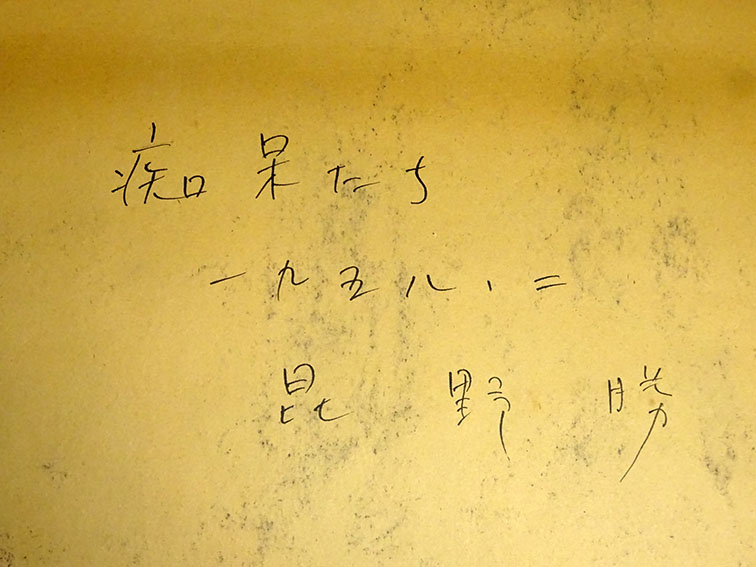 痴呆たち
一九五八、二
昆野勝